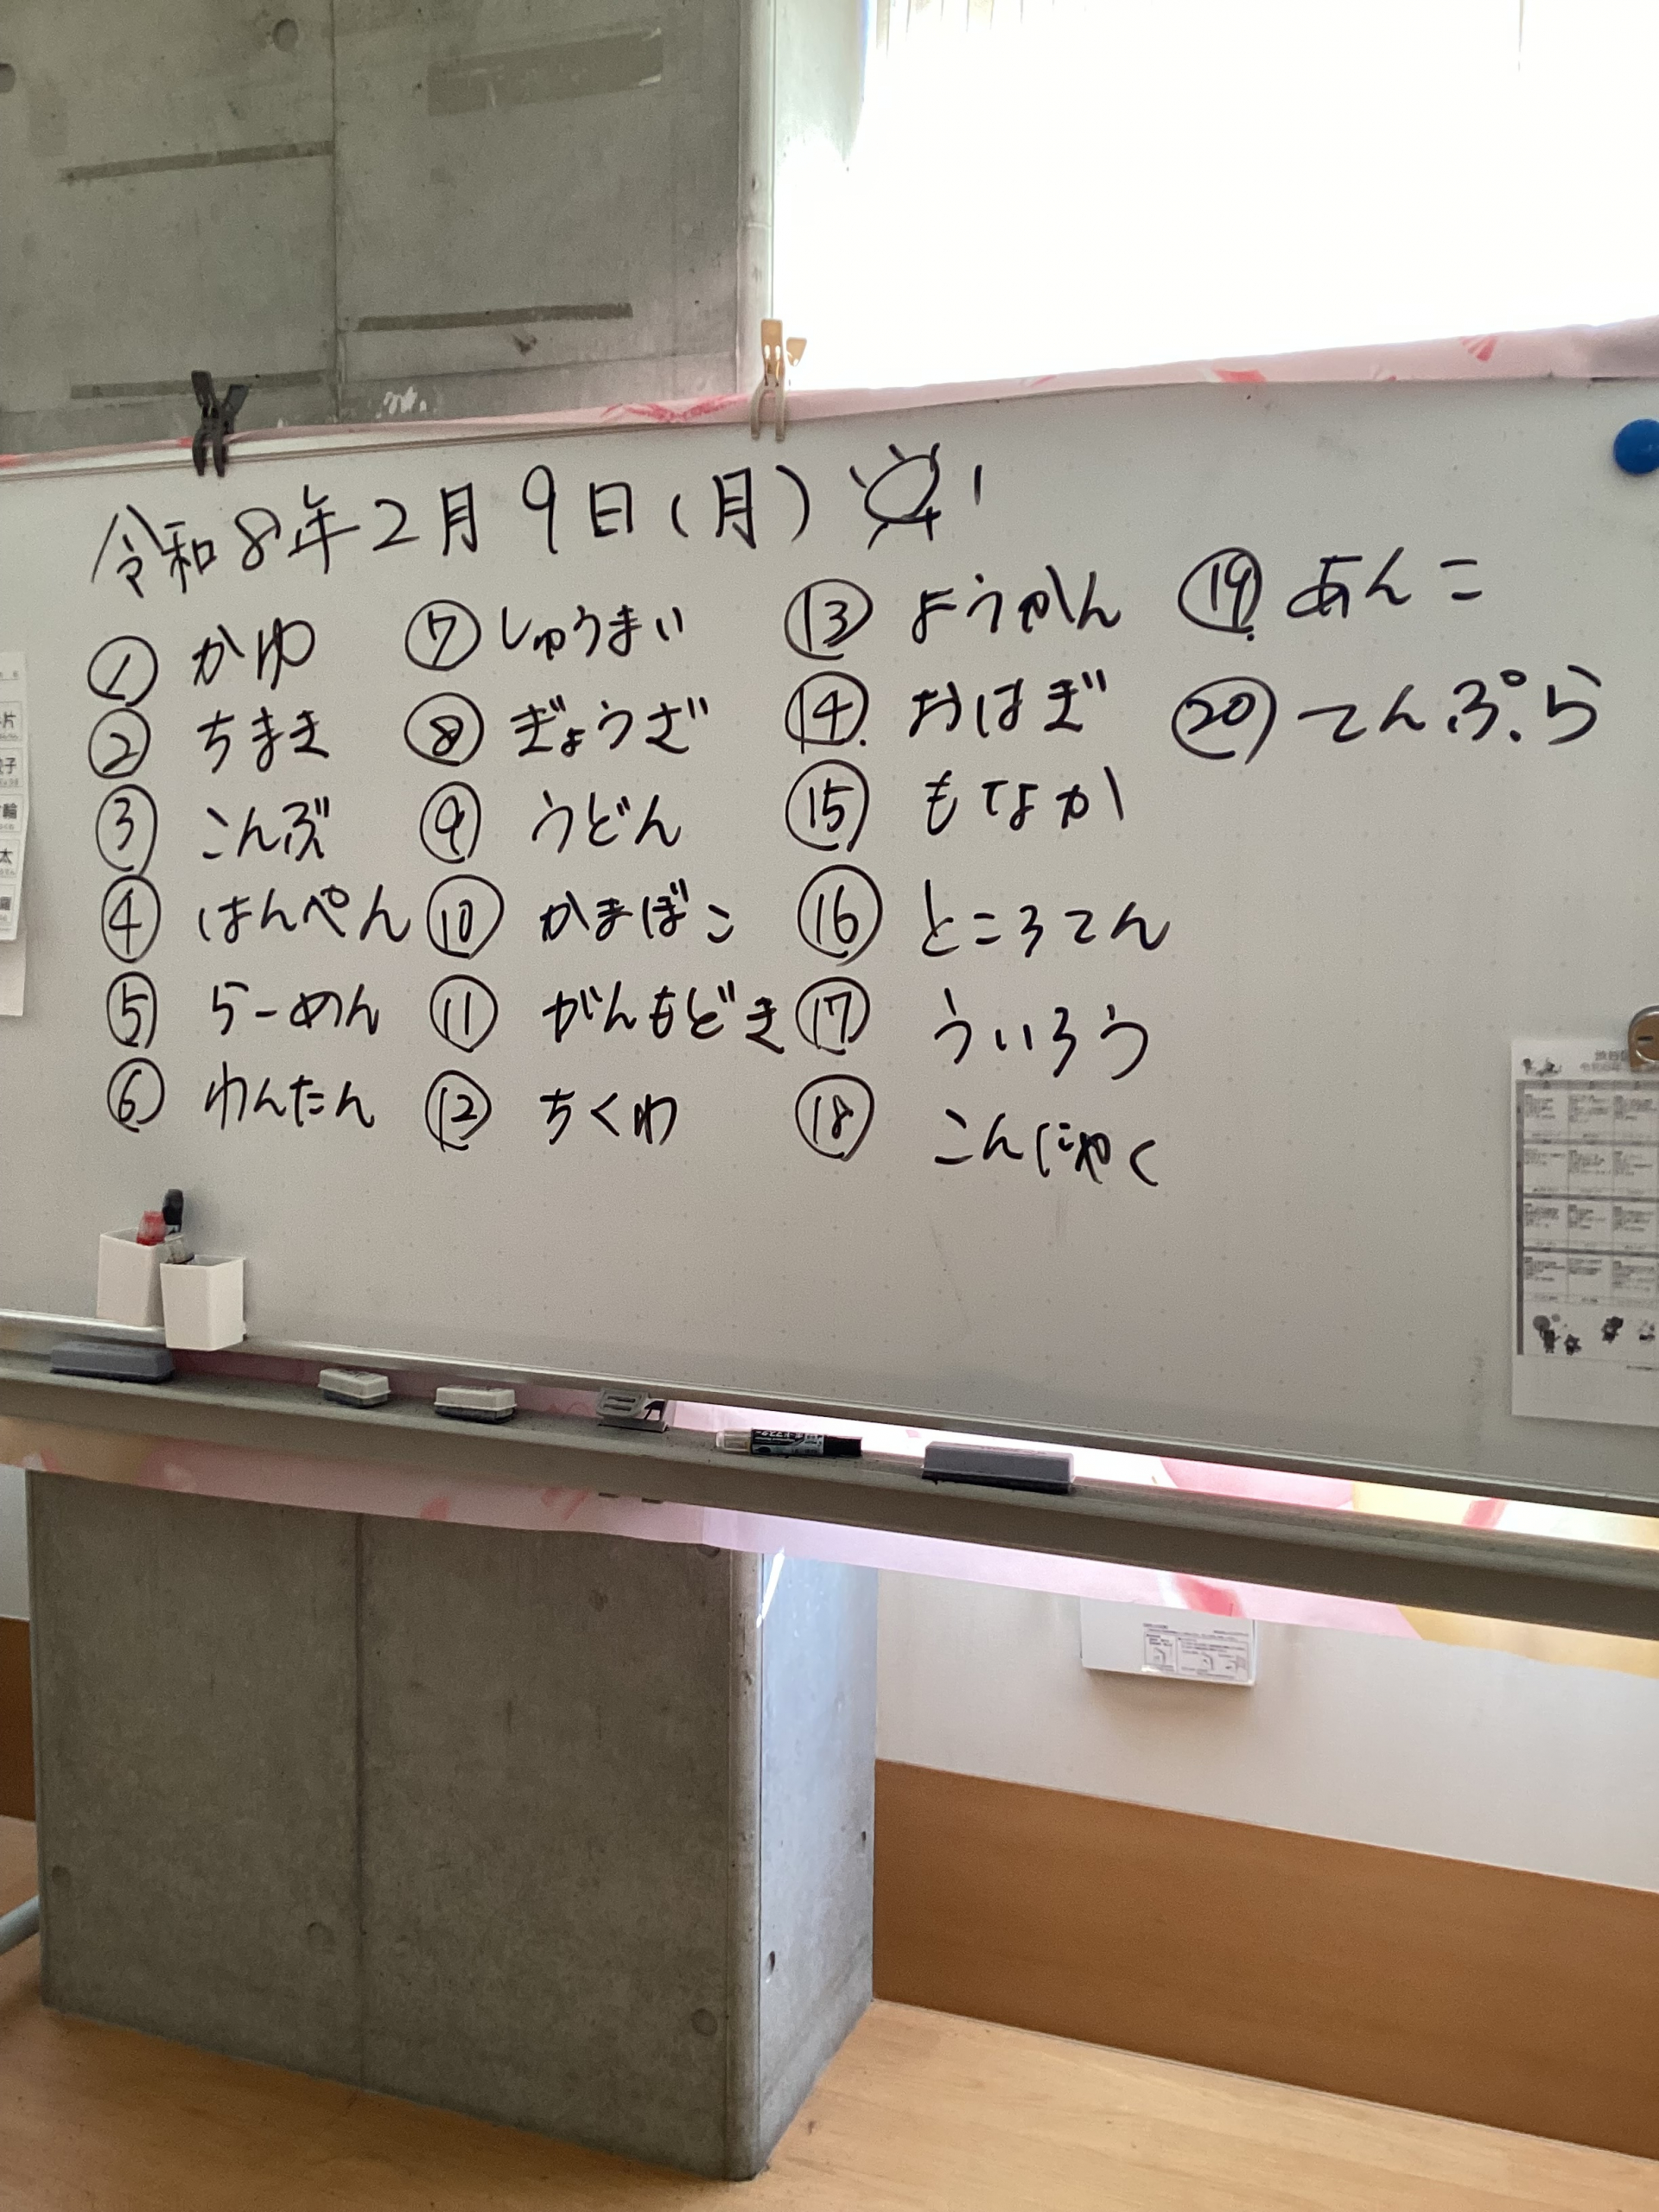 令和8年2月9日(月)
① かゆ
② ちまき
③ こんぶ
④ はんぺん
⑤ らーめん
⑥ わんたん
⑦ しゅうまい
⑧ ぎょうざ
⑨ うどん
⑩ かまぼこ
⑪ がんもどき
⑫ ちくわ
⑬ ようかん
⑭ おはぎ
⑮ もなか
⑯ ところてん
⑰ ういろう
⑱ こんにゃく
⑲ あんこ
⑳ てんぷら
片
子
輪
太